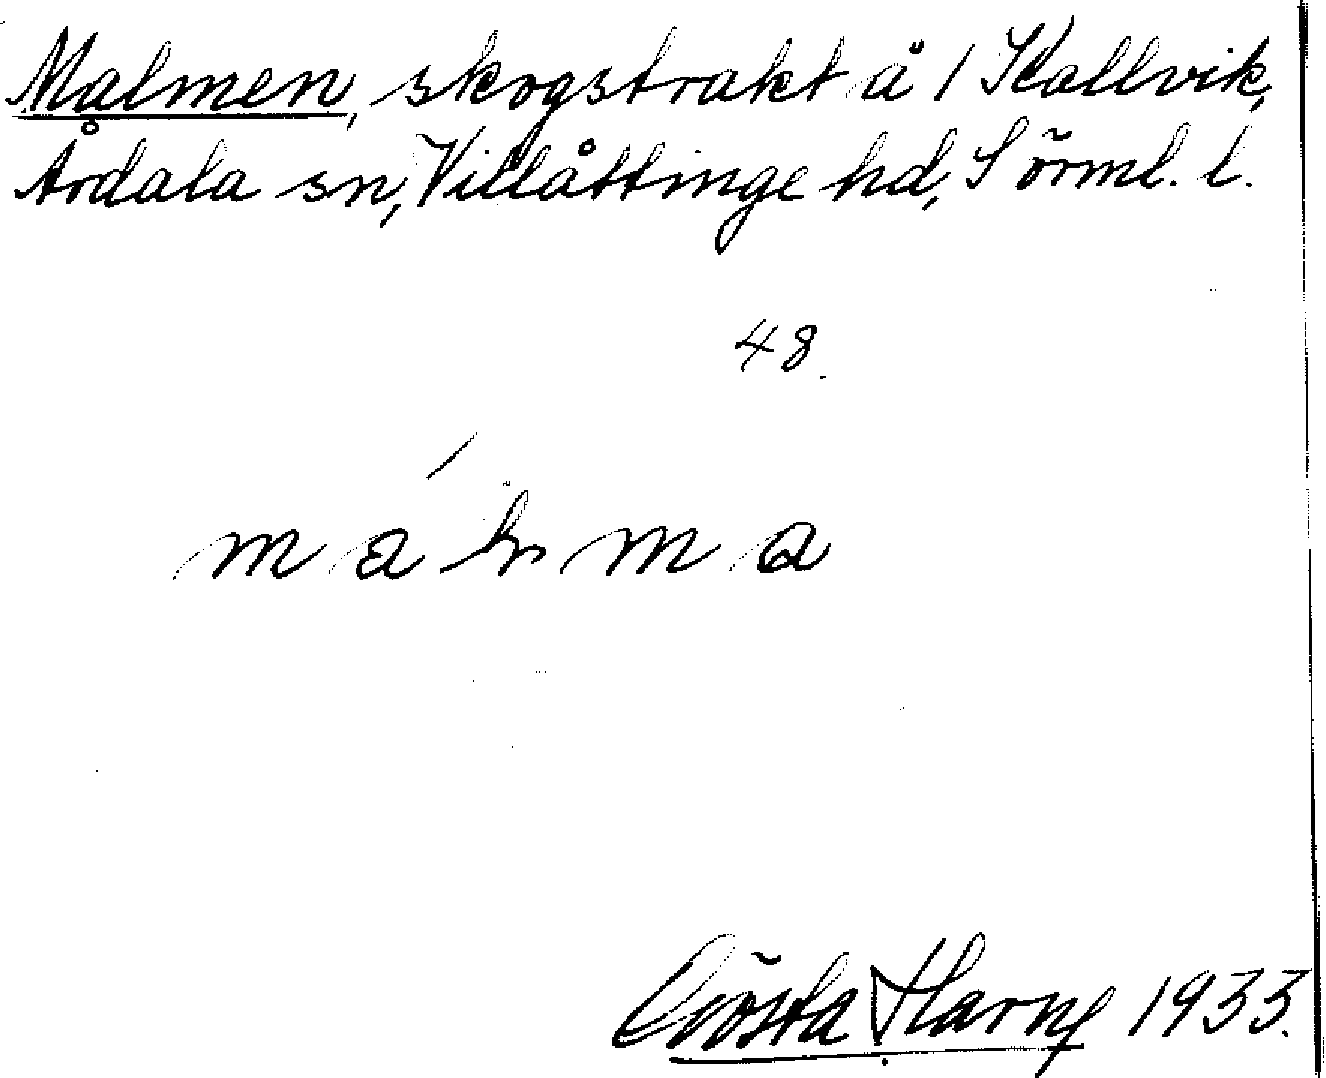 Malmen, skogstrakt å / Kallvik,
Årdala sn, Villåttinge hd, Sörml. l.
48.
Gösta Harng 1933.